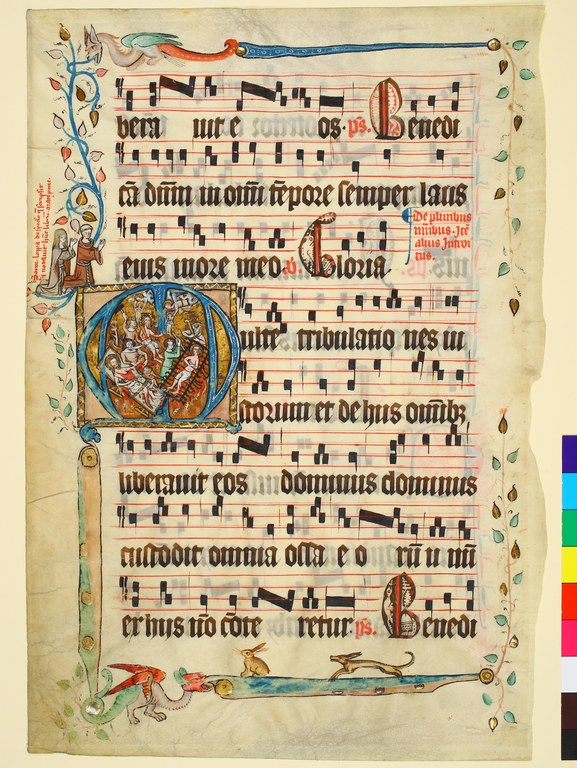 bera uit e os. ps. Benedi
cā dnm in omi tēpore semper laus
eius in ore meo. v. Gloria
De pluribus
mribus. Itē
alius Introi
tus.
Multe tribulatio nes iu
storum et de hus omibz
liberauit eos dominus dominus
custodit omnia ossa e o rū u nū
ex hijs nō cōte retur. ps. Benedi